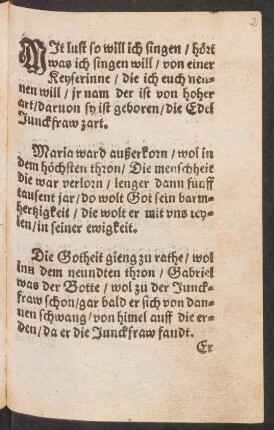 2
MIt lust so will ich singen / hört
was ich singen will / von einer
Keyserinne / die ich euch nen-
nen will / jr nam der ist von hoher
art / daruon sy ist geboren / die Edel
Junckfraw zart.
Maria ward außerkorn / wol in
dem höchsten thron / Die menscheit
die war verlorn / lenger dann fünff
tausent jar / do wolt Got sein barm-
hertzigkeit / die wolt er mit vns tey-
len / in seiner ewigkeit.
Die Gotheit gieng zu rathe / wol
inn dem neundten thron / Gabriel
was der Botte / wol zu der Junck-
fraw schon / gar bald er sich von dan-
nen schwang / von himel auff die er-
den / da er die Junckfraw fandt.
Er